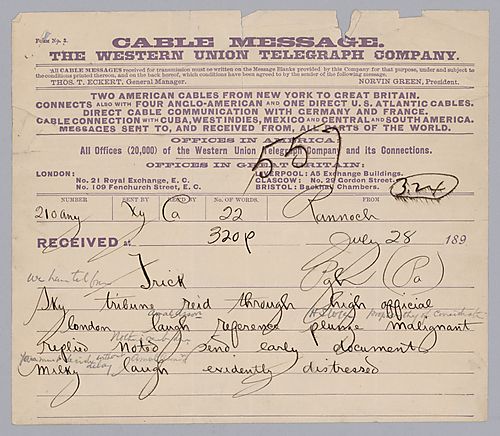 Form No. 2.
CABLE MESSAGE.
THE WESTERN UNION TELEGRAPH COMPANY.
All CABLE MESSAGES received for transmission must be written on the Message Blanks provided by this Company for that purpose, under and subject to
the conditions printed thereon, and on the back hereof, which conditions have been agreed to by the sender of the following message.
THOS. T. ECKERT, General Manager. NORVIN GREEN, President.
TWO AMERICAN CABLES FROM NEW YORK TO GREAT BRITAIN.
CONNECTS ALSO WITH FOUR ANGLO-AMERICAN AND ONE DIRECT U.S. ATLANTIC CABLES.
DIRECT CABLE COMMUNICATION WITH GERMANY AND FRANCE.
CABLE CONNECTION WITH CUBA, WEST INDIES, MEXICO AND CENTRAL AND SOUTH AMERICA.
MESSAGES SENT TO, AND RECEIVED FROM, ALL PARTS OF THE WORLD.
OFFICES IN AMERICA:
All Offices (20,000) of the Western Union Telegraph Company and its Connections.
OFFICES IN GREAT BRITAIN:
557
LONDON: LIVERPOOL: A5 Exchange Buildings.
No. 21 Royal Exchange, E. C. GLASGOW: No. 29 Gordon Street.
No. 109 Fenchurch Street, E. C. BRISTOL: Backhall Chambers.
3.24
NUMBER SENT BY REC'D BY No. OF WORDS. FROM
210 any Ca 22 Rannoch
RECEIVED at 320p July 28 189
Frick Pgh (Pa)
Sky tribune reid through high official
london laugh reference plume malignant
replied Noto send early document
without delay
Milky laugh evidently distressed